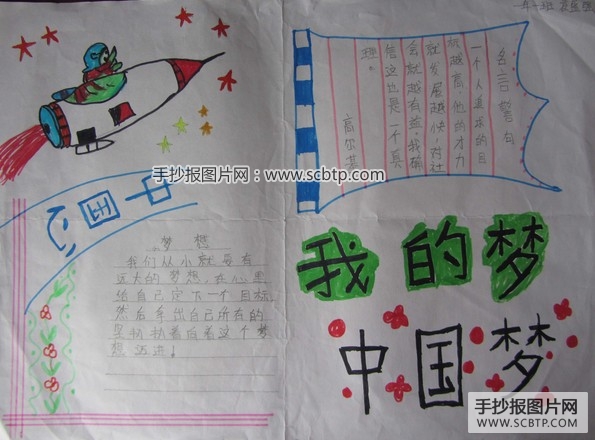 一年一班
名言警句
一个人追求的目
标越高,他的才力
就发展越快,对社
会就越有益,我确
信这也是一个真
理。
高尔基
手抄报图片网:www.scbtp.com
中国心
梦想
我们从小就要有
远大的梦想,在心里
给自己定下一个目标,
然后拿出自己所有的
坚韧执着向着这个梦
想迈进!
我的梦
中国梦
手抄报图片网
WWW.SCBTP.COM